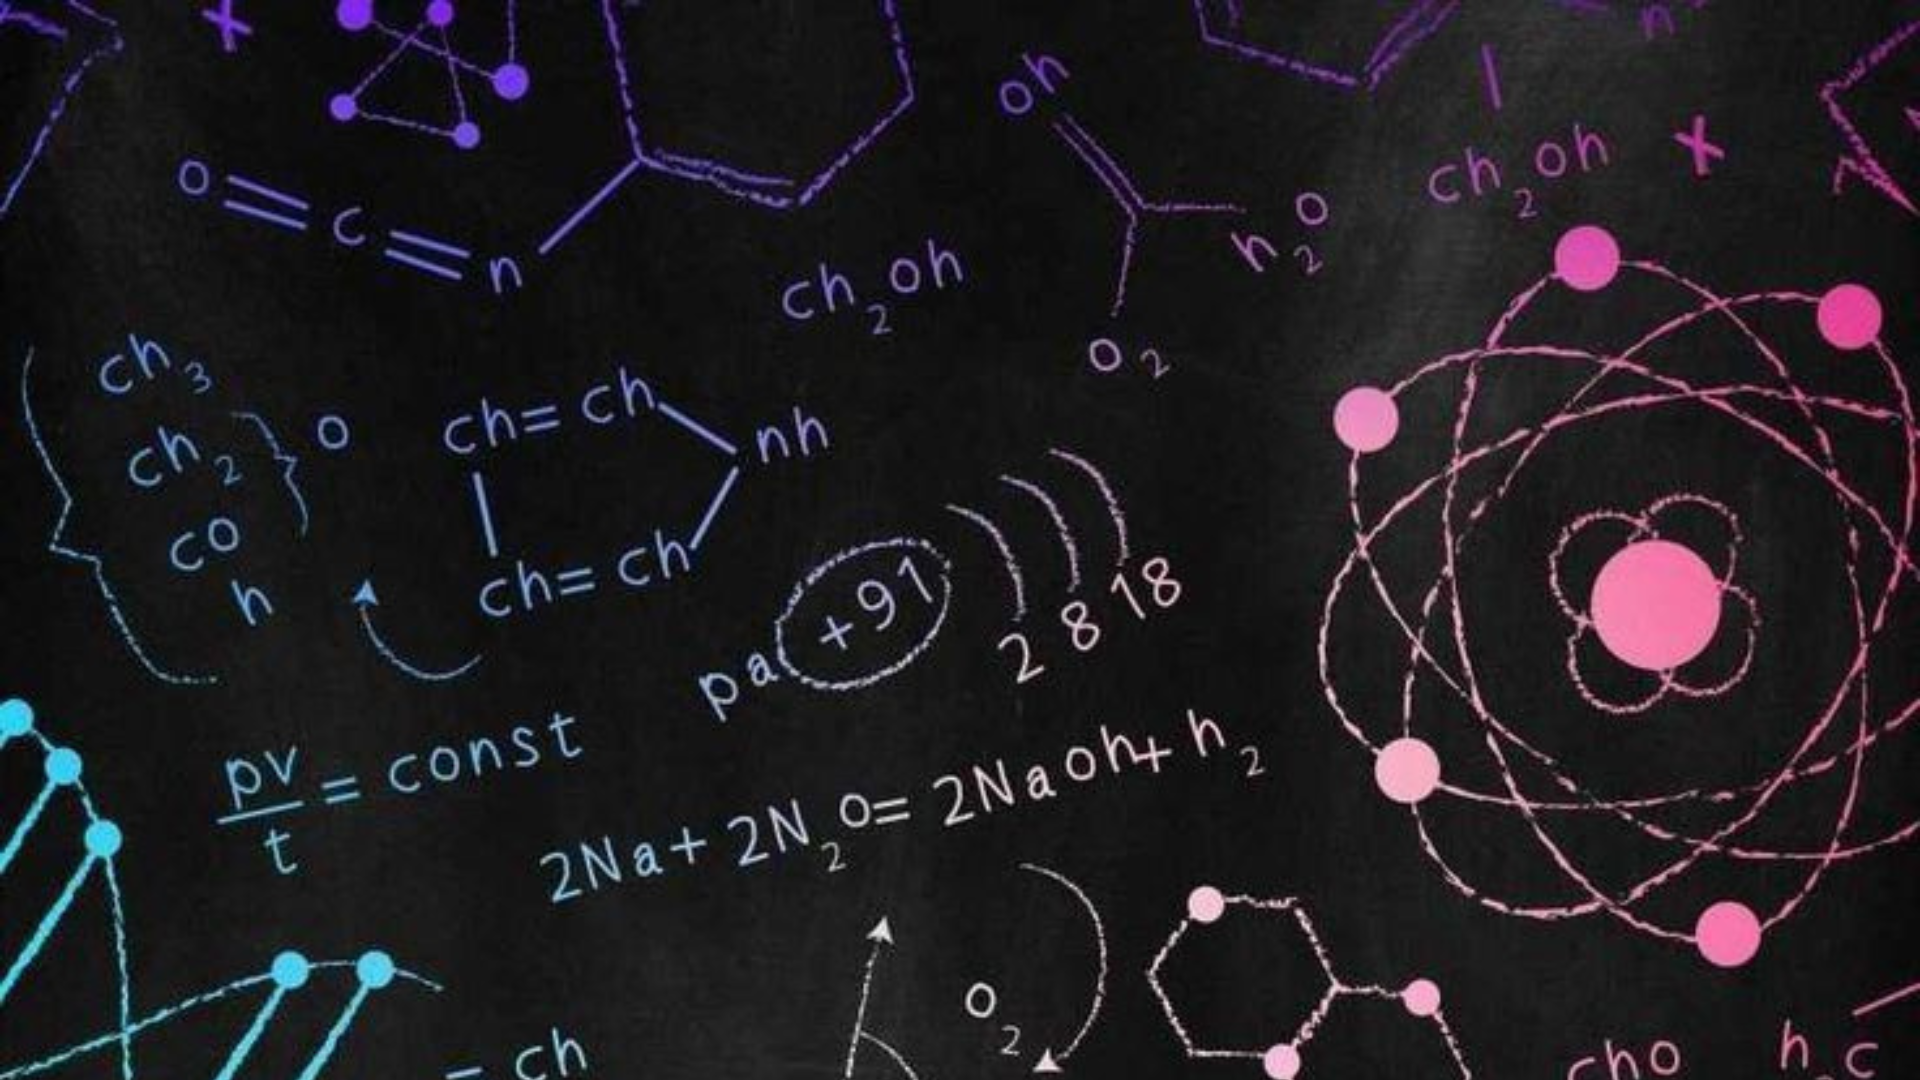 x
n
oh
O=C=n
h₂O
O₂
ch₂oh
x
ch₂oh
ch₃
ch₂
O
co
h
ch=ch
nh
ch=ch
pa +91
2 8 18
pv/t = const
2Na+ 2N₂O= 2Naoh+ h₂
O₂
= ch
cho
h₂c